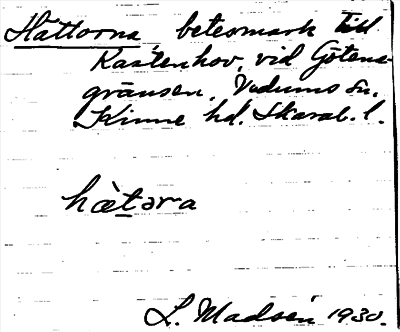 Hättorna betesmark till
Kastenhov, vid Götens-
gränsen. Vedums sn.
Kinne hd. Skarab. l.
hæ̀təra
L. Madsén 1930.